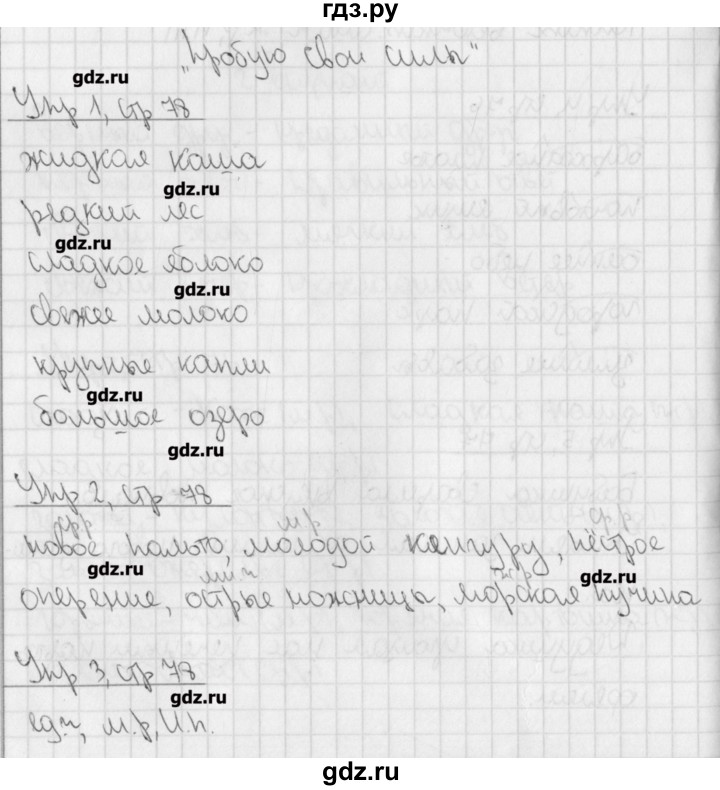 гдз.ру
"Пробую свои силы"
gdz.ru
Упр 1, стр 78
жидкая каша
gdz.ru
редкий лес
gdz.ru
сладкое яблоко
gdz.ru
свежее молоко
крупные капли
gdz.ru
большое озеро
gdz.ru
Упр 2, стр 78
ср р м.р ср.р
новое пальто, молодой кенгуру, пёстрое
gdz.ru мн.ч ж.р gdz.ru
оперение, острые ножницы, морская пучина
Упр 3, стр 78
gdz.ru
ед.ч, м.р, И.п.
gdz.ru